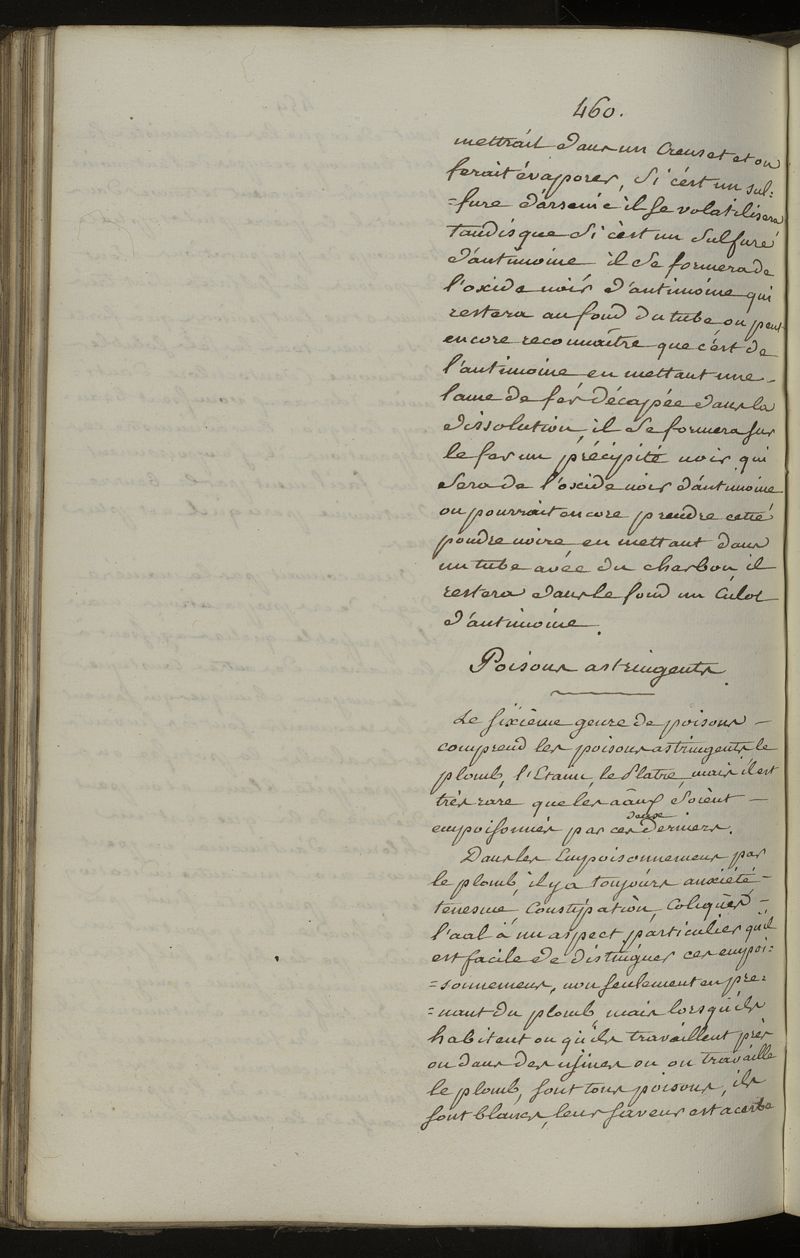 460.
mettrait dans un Creuset et on
ferait évaporer, Si c'est un sul=
=fure d'arsenic il se volatilisera
tandisque Si c'est un Sulfure
d'antimoine il Se formera de
l'oxide noir d'antimoine qui
restera au fond du tube, on peut
encore reconnaître que c'est de
l'antimoine en mettant une
lame de fer décapée dans la
dissolution, il Se formera sur
le fer un précipité noir qui
Sera de l'oxide noir d'antimoine
on pourrait encore prendre cette
poudre noire en mettant dans
un tube avec du charbon il
restera dans le fond un Culot
d'antimoine.
Poisons astringents.
Le sixième genre de poisons
comprend les poisons astringents le
plomb, l'Etain, le Platre, mais il est
très rare que les aãux Soient
empoisonnés par ces deux derniers.
Dans les Empoisonnemens par
le plomb, il y a toujours anxiété
tenesme, Constipation, Coliques
l'aal à un aspect particulier qu'il
est facile de distinguer ces empoi=
=sonnemens, non seulement en pre=
=nant du plomb, mais lorsqu'ils
habitent ou qu'ils travaillent près
ou dans des usines ou on travaille
le plomb, sont tous poisons, ils
sont blancs, leur saveur est acerbe